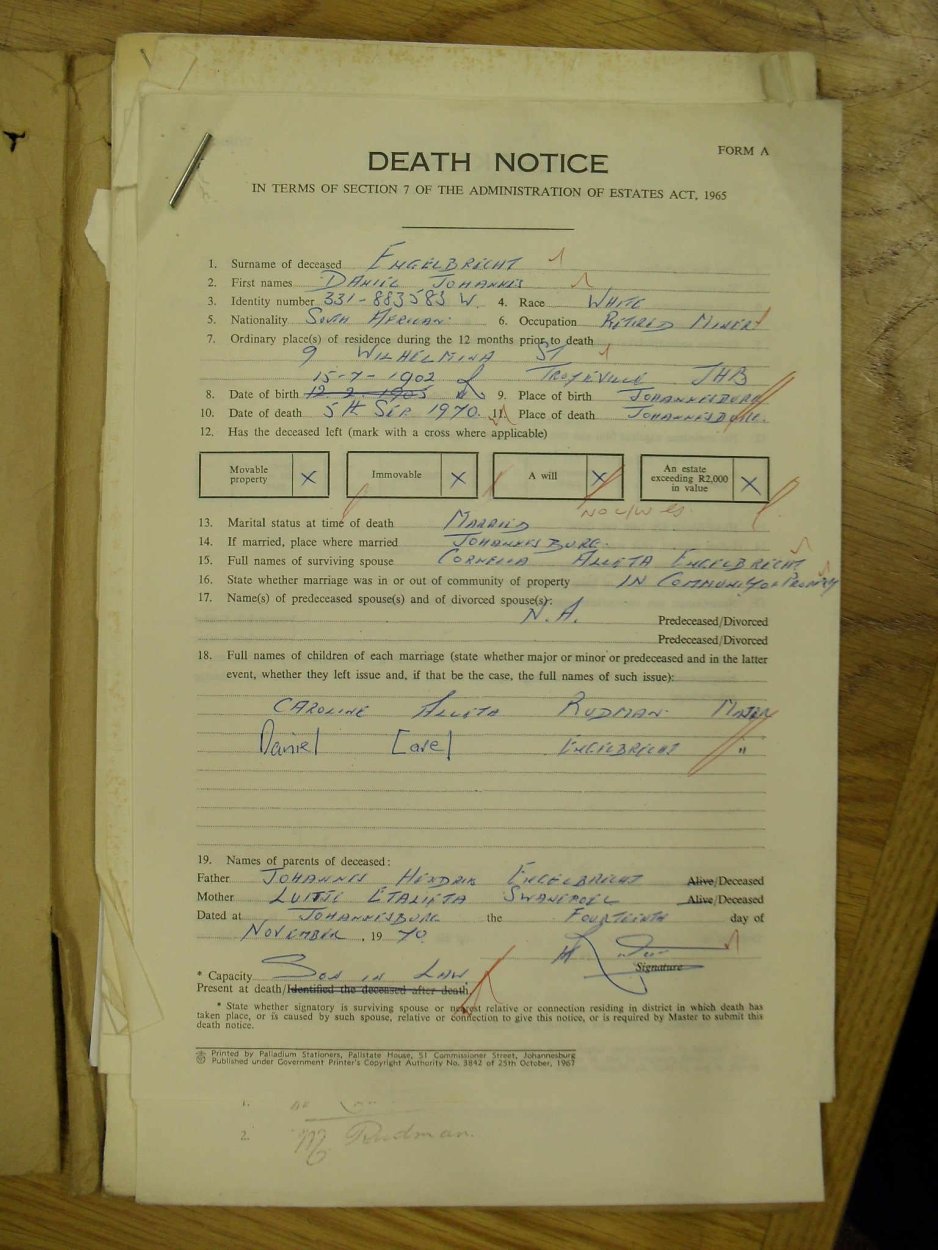 FORM A
DEATH NOTICE
IN TERMS OF SECTION 7 OF THE ADMINISTRATION OF ESTATES ACT, 1965
1. Surname of deceased ENGELBRECHT
2. First names DANIEL JOHANNES
3. Identity number 331-883583 W. 4. Race WHITE
5. Nationality SOUTH AFRICAN. 6. Occupation RETIRED MINER
7. Ordinary place(s) of residence during the 12 months prior to death
9 WILHELMINA ST
15-7-1902 TROYEVILLE JHB
8. Date of birth 12.2.1905 9. Place of birth JOHANNESBURG
10. Date of death 5th SEP. 1970. 11. Place of death JOHANNESBURG.
12. Has the deceased left (mark with a cross where applicable)
Movable property X Immovable X A will X An estate exceeding R2,000 in value X
13. Marital status at time of death MARRIED
14. If married, place where married JOHANNESBURG.
15. Full names of surviving spouse CORNELIA ALLETA ENGELBRECHT
16. State whether marriage was in or out of community of property IN COMMUNITY OF PROPERTY
17. Name(s) of predeceased spouse(s) and of divorced spouse(s):
N.A. Predeceased/Divorced
Predeceased/Divorced
18. Full names of children of each marriage (state whether major or minor or predeceased and in the latter
event, whether they left issue and, if that be the case, the full names of such issue):
CAROLINE ALLETA RUDMAN MAJOR
Daniel Carel ENGELBRECHT "
19. Names of parents of deceased:
Father JOHANNES HENDRIK ENGELBRECHT Alive/Deceased
Mother SWANEPOEL Alive/Deceased
Dated at JOHANNESBURG the FOURTEENTH day of
NOVEMBER, 1970.
Signature
* Capacity SON IN LAW.
Present at death/Identified the deceased after death.
* State whether signatory is surviving spouse or nearest relative or connection residing in district in which death has
taken place, or is caused by such spouse, relative or connection to give this notice, or is required by Master to submit this
death notice.
Printed by Palladium Stationers, Pallstate House, 51 Commissioner Street, Johannesburg
Published under Government Printer's Copyright Authority No. 3842 of 25th October, 1967
1.
2. Rudman.